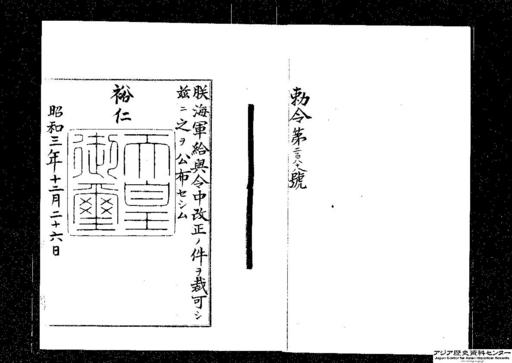 勅令第二百八八號
朕海軍給與令中改正ノ件ヲ裁可シ
茲ニ之ヲ公布セシム
裕仁
天皇
御璽
昭和三年十二月二十六日
アジア歴史資料センター
Japan Center for Asian Historical Records